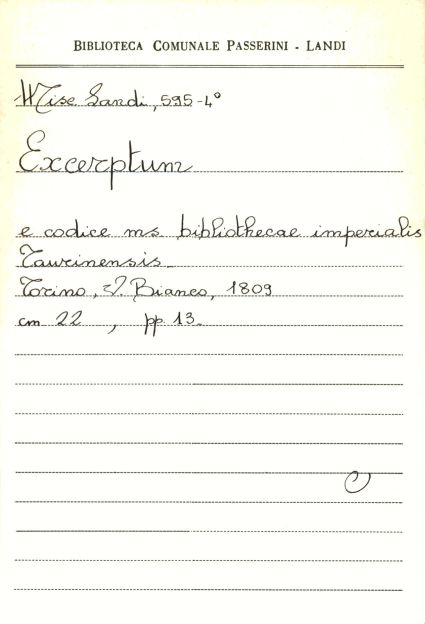 BIBLIOTECA COMUNALE PASSERINI - LANDI
Misc. Landi, 595-4°
Excerptum
e codice ms bibliothecae imperialis
Taurinensis
Torino, V. Bianco, 1809
cm 22 , pp. 13.